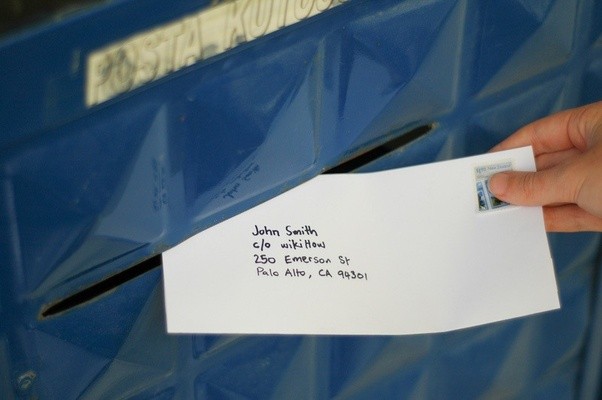 POSTA KUTUSU
John Smith
c/o wikiHow
250 Emerson St
Palo Alto, CA 94301